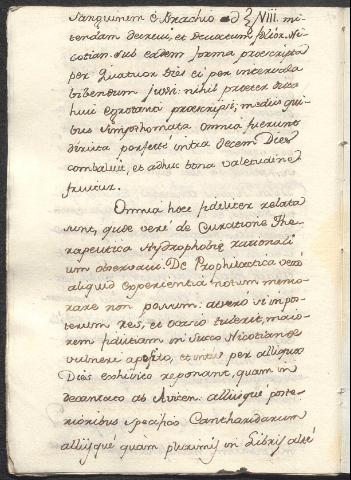 Sanguinem è Brachio ad ℥VIII. mi-
tendam decrevi, et Decoctum folior. Ni-
cotian. sub eadem forma praescripta
per quatuor Dies ei per intervala
bibendum jussi: nihil praeter dicta
huic egrotanti praescripsi, mediis qui-
bus simpthomata omnia fuerunt
divicta porfecté intra decem Dies
combaluit, et adhuc bona valetudine
fruitur.
Omnia haec fideliter relata
sunt, quae veré de Curatione The-
rapeutica Hydrophobae rationali-
um observavi. De Prophilactica veró
aliquid experientia notum memo-
rare non possum: at veró si in pos-
terum res, et casio tulerit, maio-
rem fiditiam in Succo Nicotianae
vulneri aposito, et intus per alliquos
Dies exhivito reponant, quam in
decantato ab Avicen. alliisque poste-
rioribus specifico Cantharidarum
alliisqué quam plurimis in Libris alté